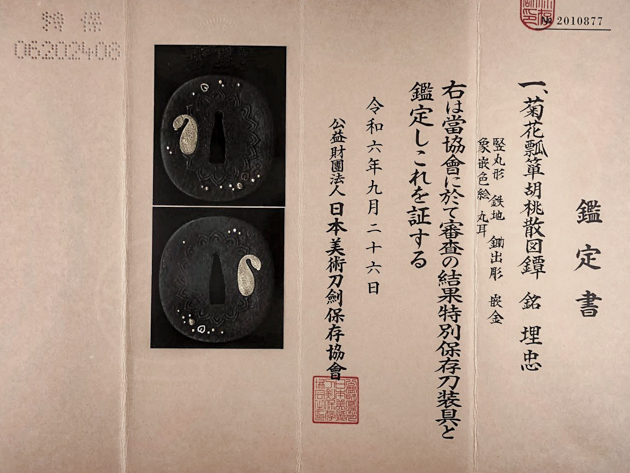 鑑定書
一、菊花瓢箪胡桃散図鐔 銘 埋忠
竪丸形 鉄地 鋤出彫 嵌金
象嵌色絵 丸耳
右は當協會に於て審査の結果特別保存刀装具と
鑑定しこれを証する
令和六年九月二十六日
公益財團法人 日本美術刀劍保存協會
№ 2010877
特 保
06202403